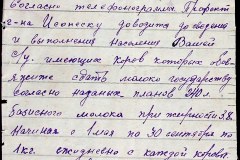 Согласно телефонограмма Префект
г-на Ионеску доводит до сведения
и выполнения населения Вашей
с/у. имеющих коров которых
сдать молоко государству
согласно наданных планов
базисного молока при жирности 3.8.
начиная с 1 мая по 30 сентября по
1 кг. ежедневно с каждой коровы